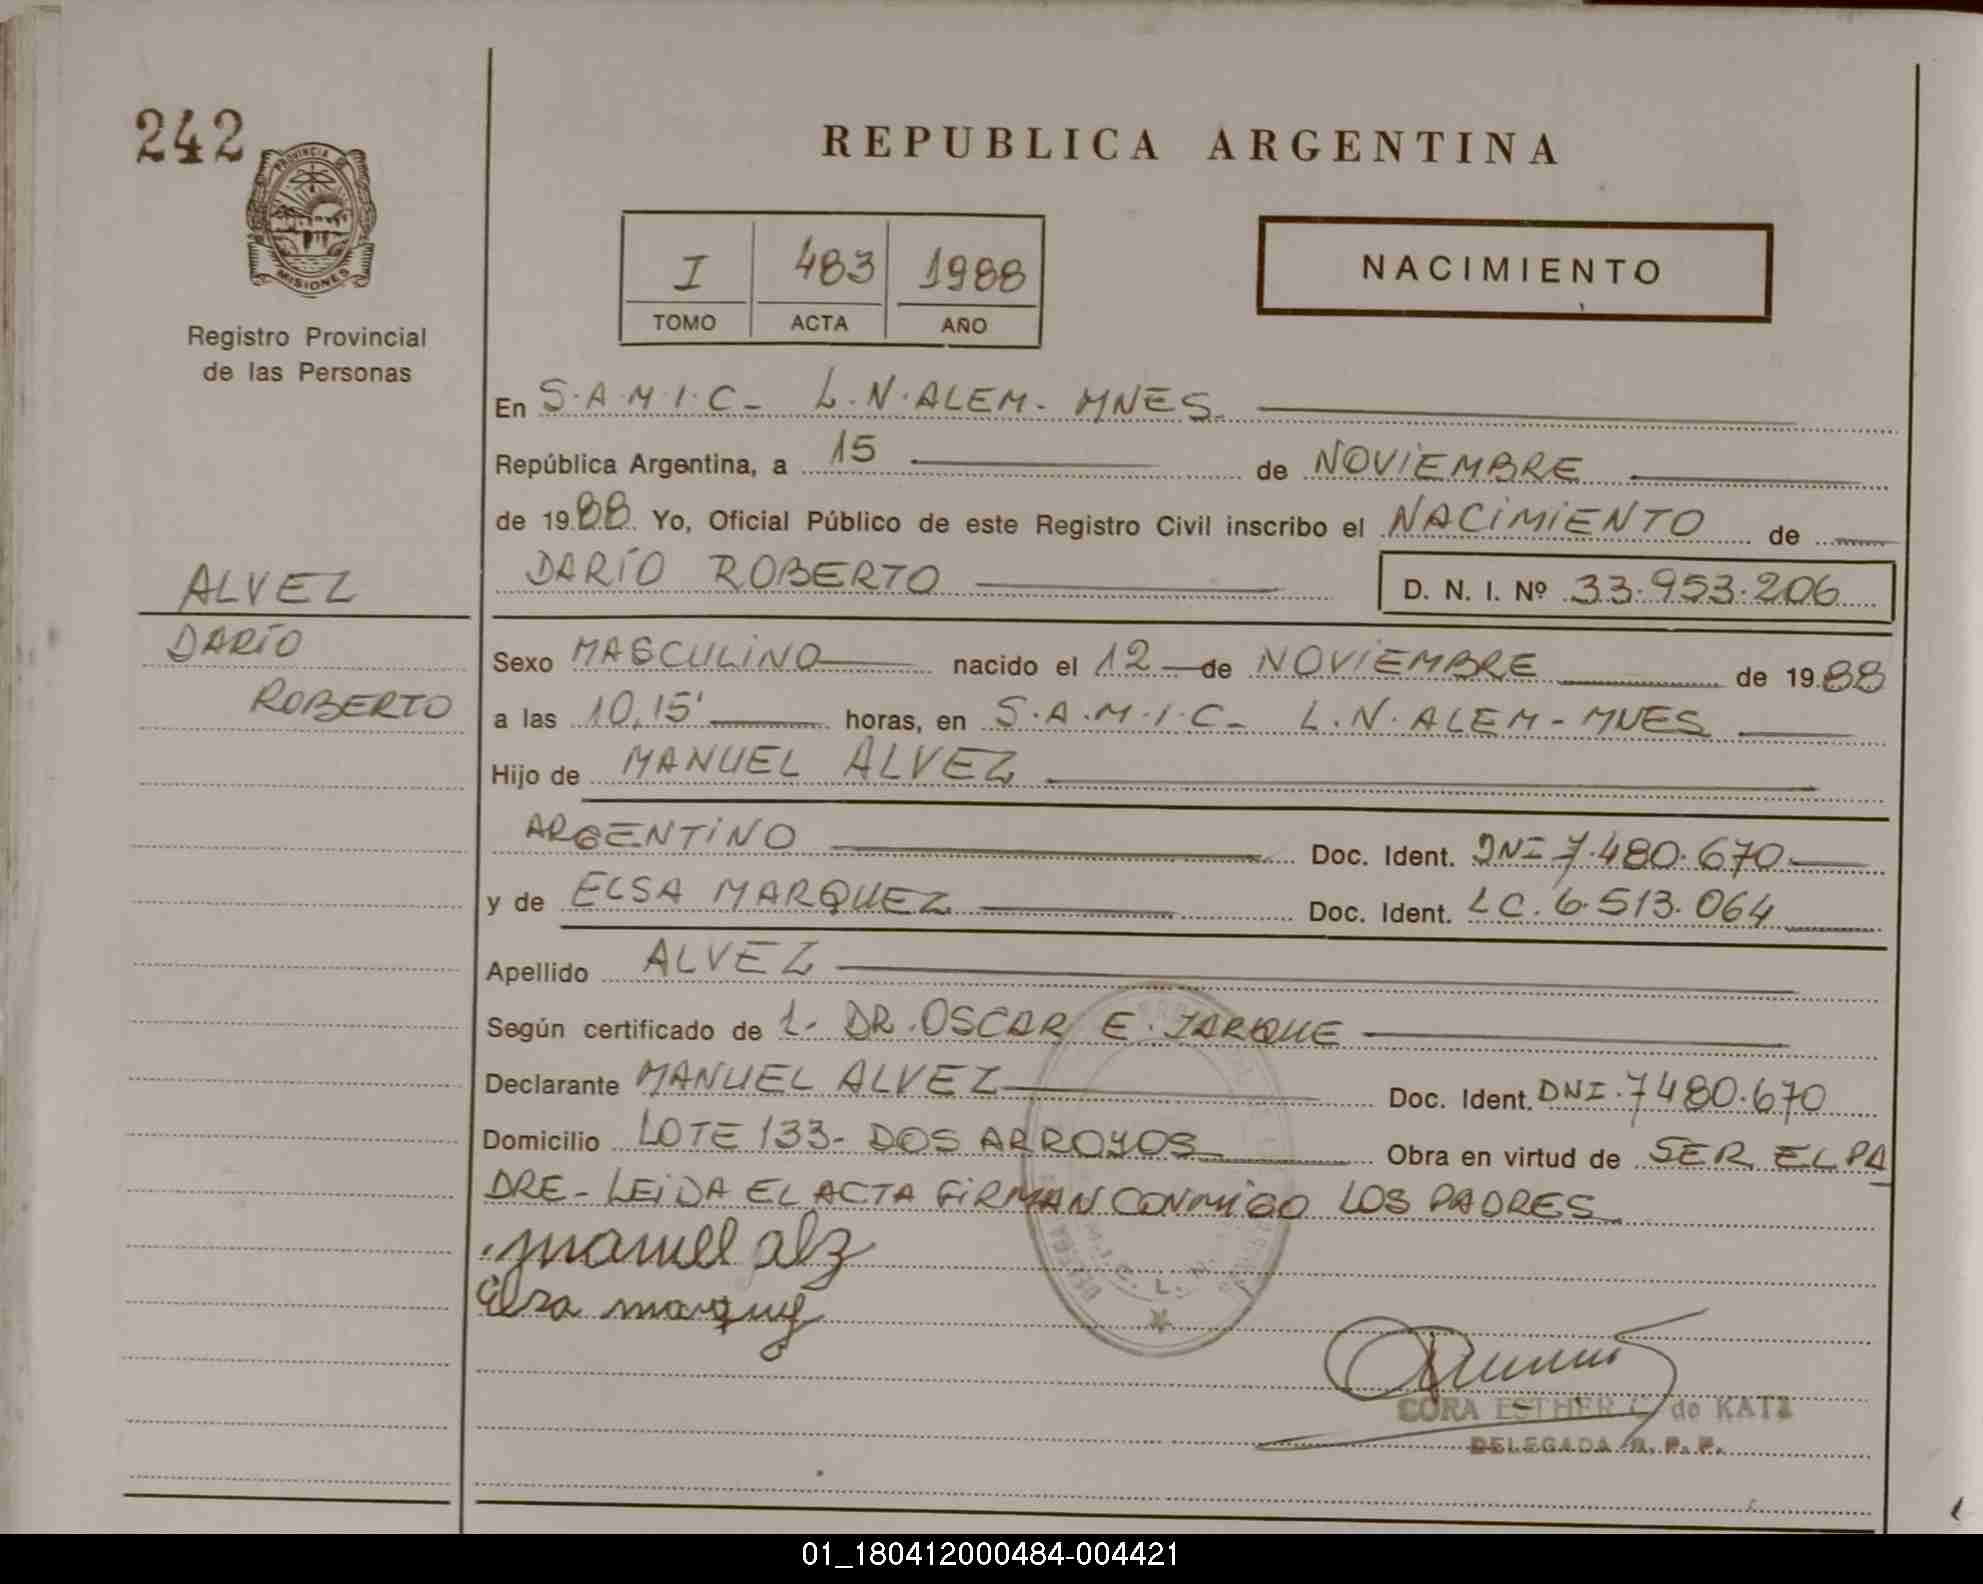 242
REPUBLICA ARGENTINA
PROVINCIA DE
MISIONES
I 483 1988
TOMO ACTA AÑO
NACIMIENTO
Registro Provincial
de las Personas
En S.A.M.I.C- L.N.ALEM- MNES.
República Argentina, a 15 de NOVIEMBRE
de 1988 Yo, Oficial Público de este Registro Civil inscribo el NACIMIENTO de
DARÍO ROBERTO D. N. I. Nº 33.953.206
ALVEZ
DARÍO
ROBERTO
Sexo MASCULINO nacido el 12 de NOVIEMBRE de 1988
a las 10,15' horas, en S.A.M.I.C- L.N.ALEM-MNES
Hijo de MANUEL ALVEZ
ARGENTINO Doc. Ident. DNI 7.480.670
y de ELSA MARQUEZ Doc. Ident. LC.6.513.064
Apellido ALVEZ
Según certificado de 1- DR.OSCAR E. JARQUE
Declarante MANUEL ALVEZ Doc. Ident. DNI.7480.670
Domicilio LOTE 133- DOS ARROYOS Obra en virtud de SER EL PA
DRE- LEIDA EL ACTA FIRMAN CONMIGO LOS PADRES
manuel alz
Elsa marquez
CORA ESTHER C. de KATZ
DELEGADA R. P. P.
01_180412000484-004421